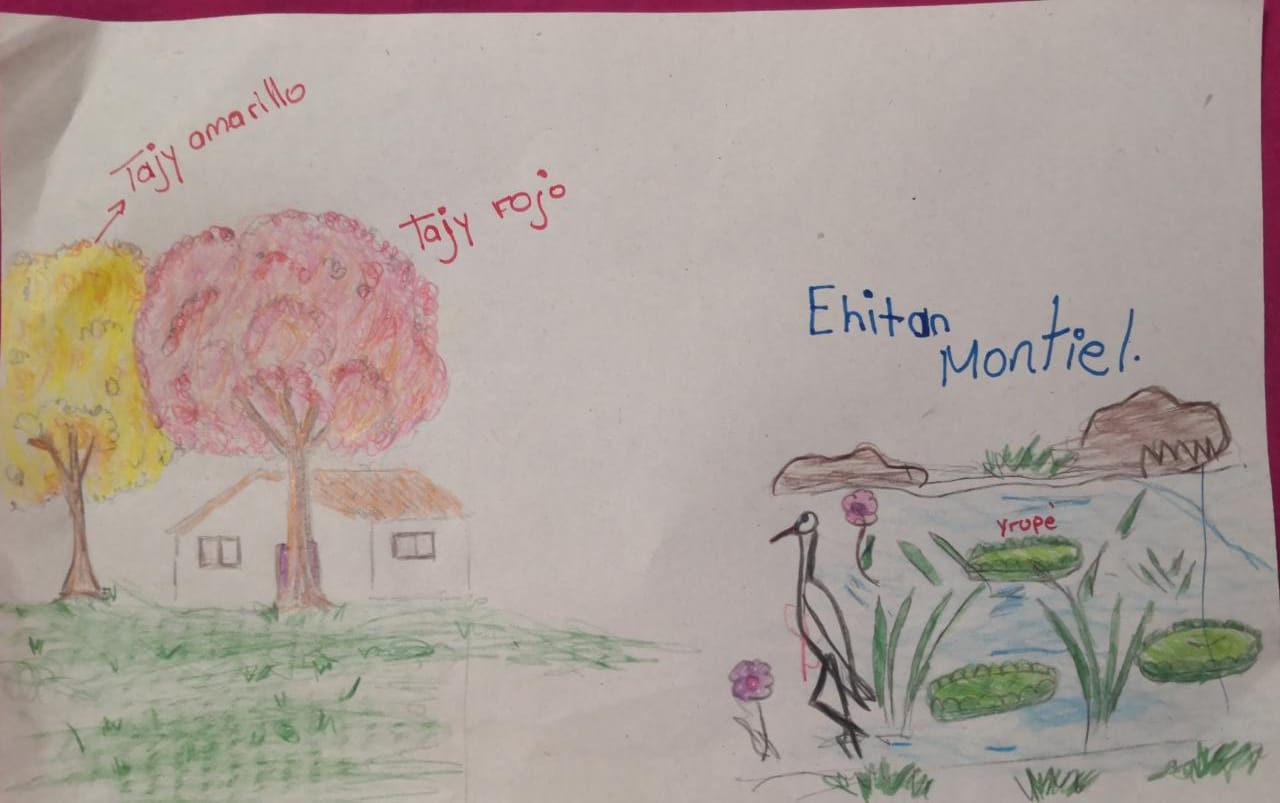 Tajy amarillo
Tajy rojo
Ehitan
Montiel.
yrupè